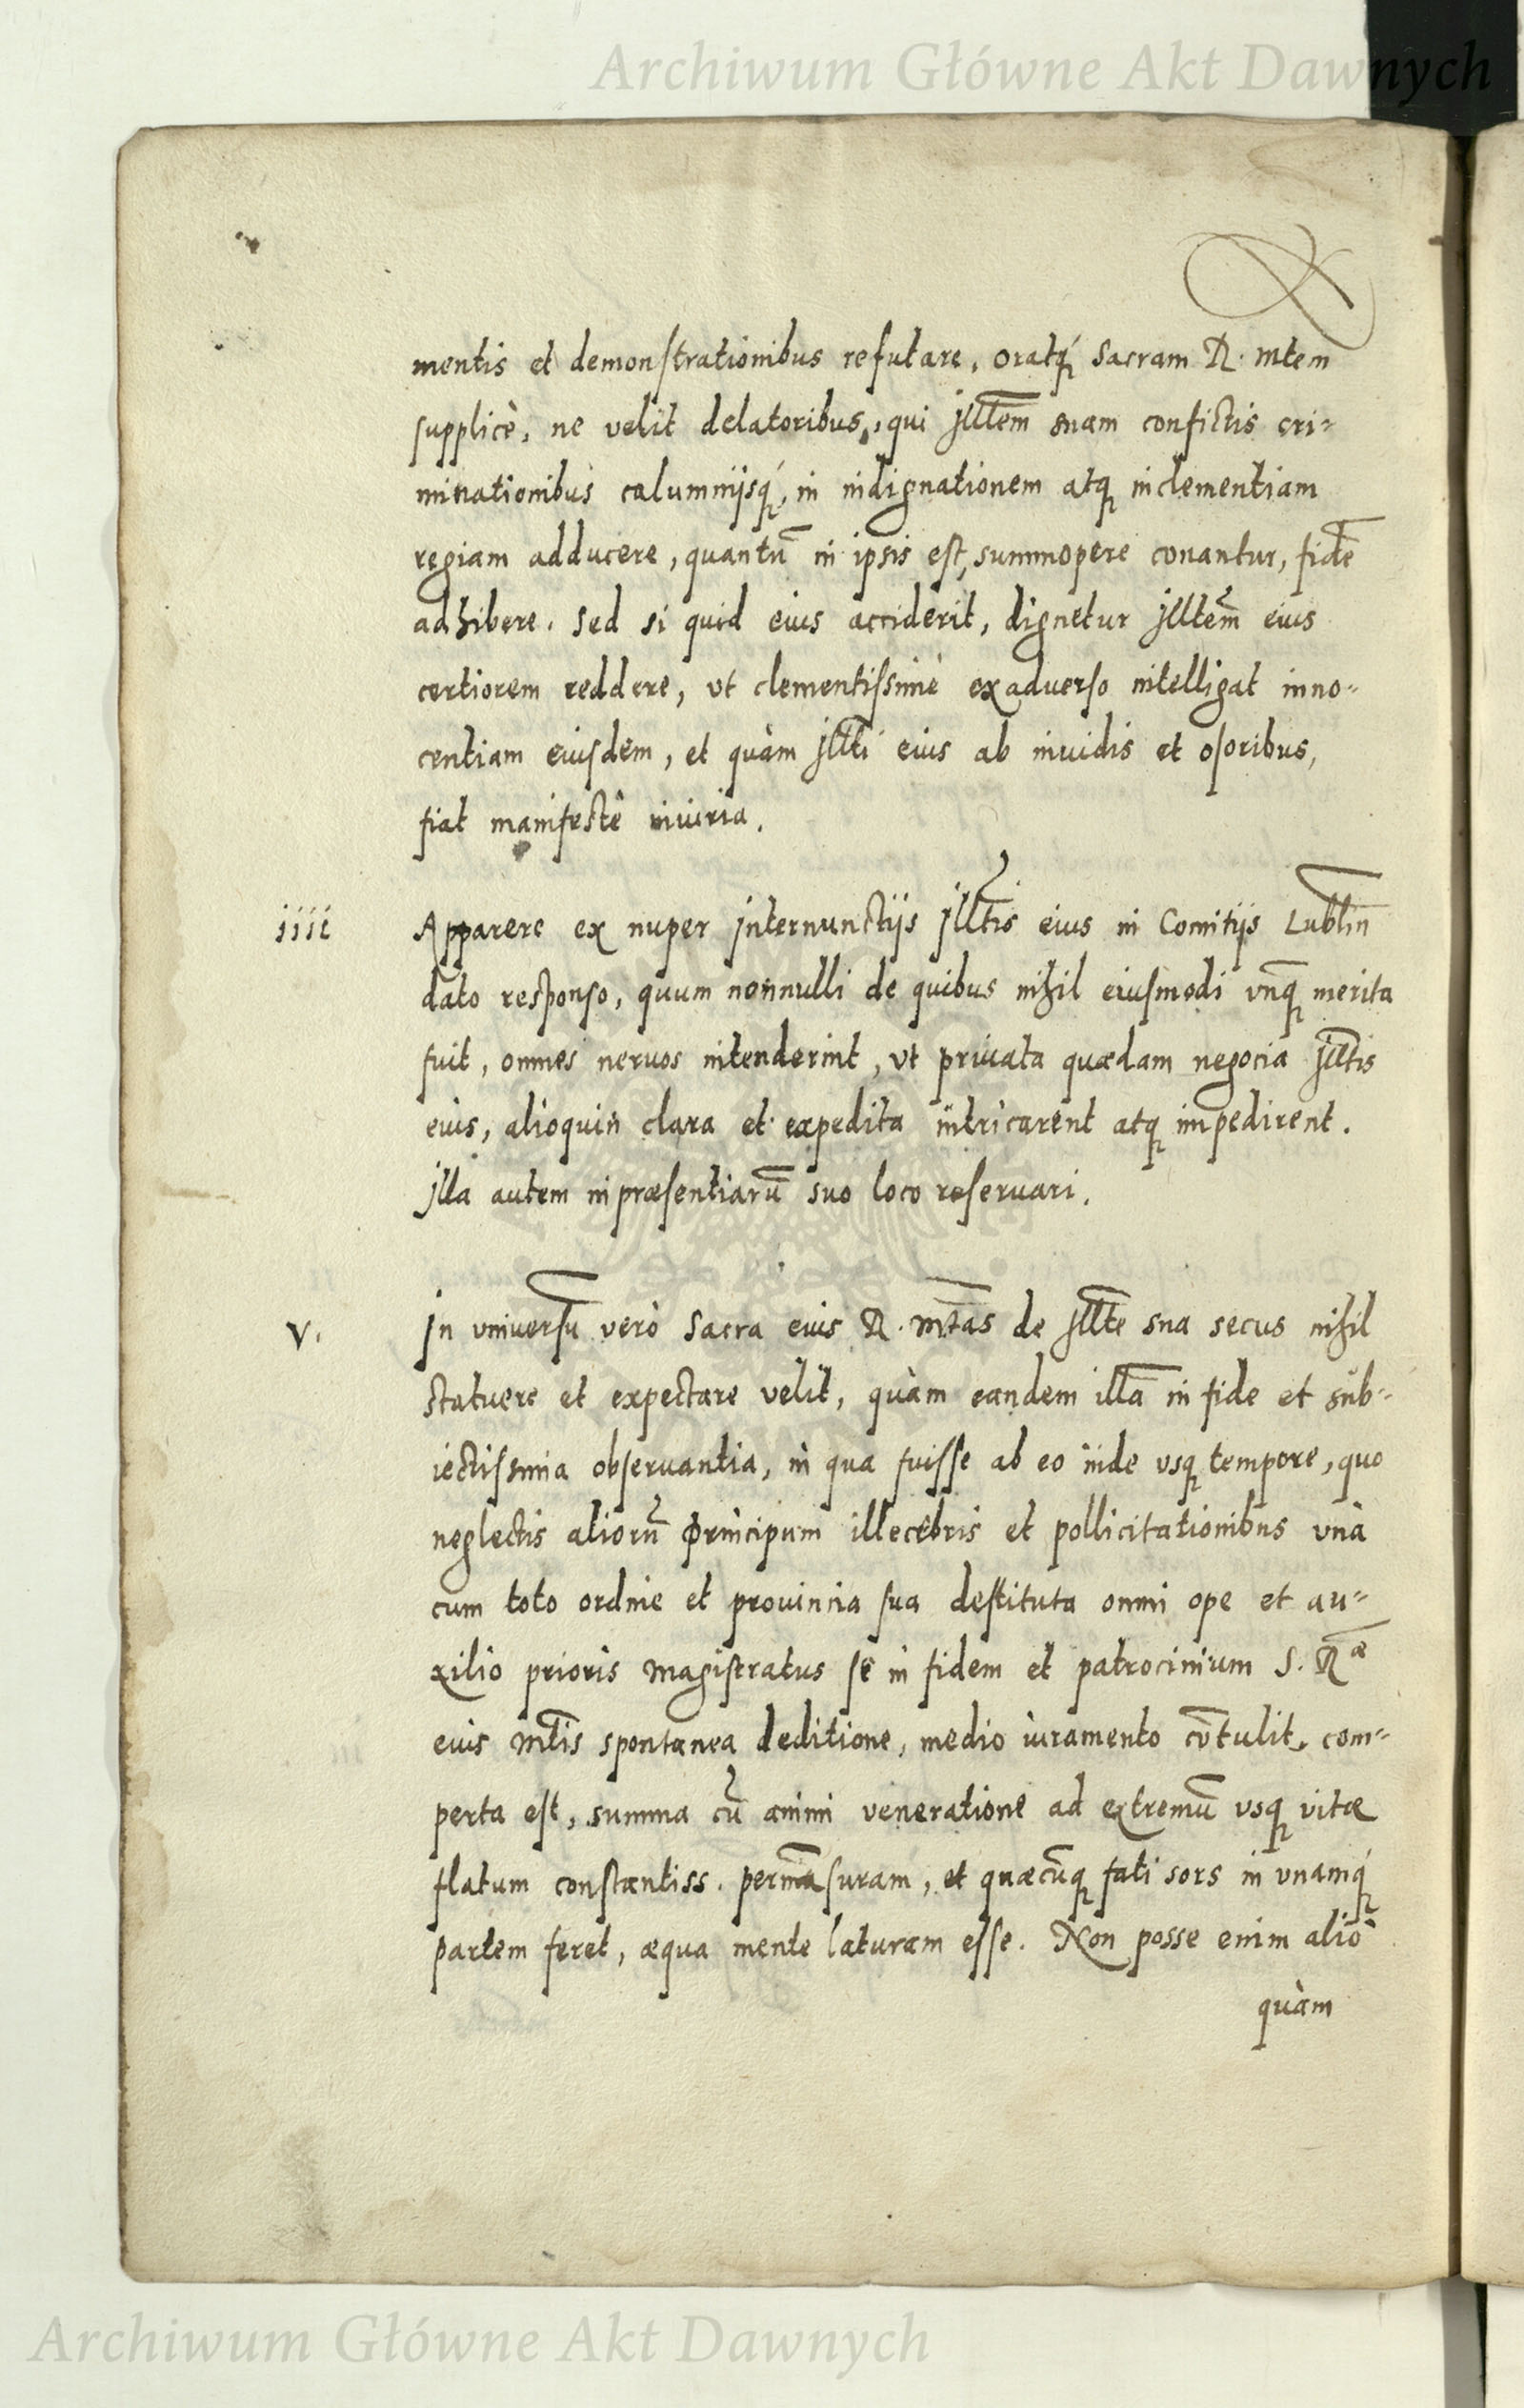 Archiwum Główne Akt Dawnych
mentis et demonstrationibus refutare, oratq́ꝫ Sacram R. Mtem
supplicè, ne velit delatoribus, qui Jll̅tem suam confictis cri=
minationibus calumnijsq́ꝫ, in indignationem atqꝫ inclementiam
regiam adducere, quantu̅ in ipsis est, summopere conantur, fide̅
adhibere. Sed si quid eius acciderit, dignetur Jlltem̅ eius
certiorem reddere, vt clementissimè ex aduerso intelligat inno=
centiam eiusdem, et quàm Jll̅ti eius ab inuidis et osoribus,
fiat manifestè iniuria.
iiii Apparere ex nuper Jnternunctijs Jll̅tis eius in Comitijs Lubli̅n
dato responso, quum nonnulli de quibus nihil eiusmodi vnq̅ꝫ merita
fuit, omnes neruos intenderint, vt priuata quædam negocia Jll̅tis
eius, alioquin clara et expedita intricarent atqꝫ impedirent.
Jlla autem in præsentiaru̅ suo loco reseruari.
V. Jn vniuersu̅ verò Sacra eius R. Mt̅as de Jll̅te sua secus nihil
statuere et expectare velit, quàm eandem illa̅ in fide et sub=
iectissima obseruantia, in qua fuisse ab eo inde vsqꝫ tempore, quo
neglectis alioru̅ Principum illecebris et pollicitationibus vnà
cum toto ordine et prouincia sua destituta omni ope et au=
xilio prioris Magistratus se in fidem et patrocinium S. R̅æ
eius Mt̅is spontanea deditione, medio iuramento co̅tulit, com=
perta est, summa cu̅ animi veneratione ad extremu̅ vsqꝫ vitæ
flatum constantiss. perma̅suram, et quæcu̅qꝫ fati sors in vnamq́ꝫ
partem feret, æqua mente laturam esse. Non posse enim aliò
quàm
Archiwum Główne Akt Dawnych